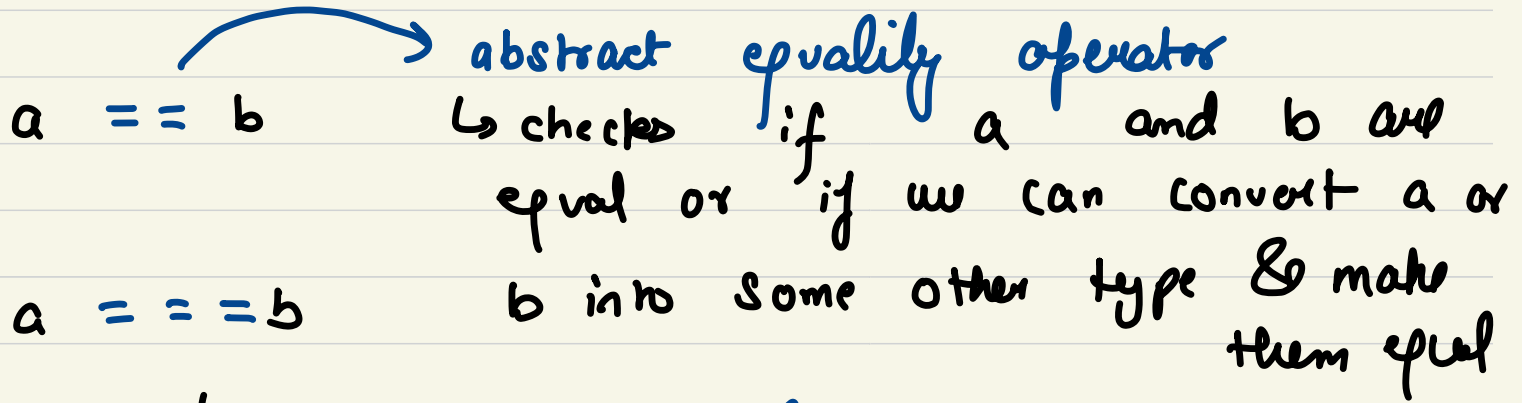 abstract equality operator
a == b ↳ checks if a and b are
equal or if we can convert a or
a === b b into some other type & make
them equal